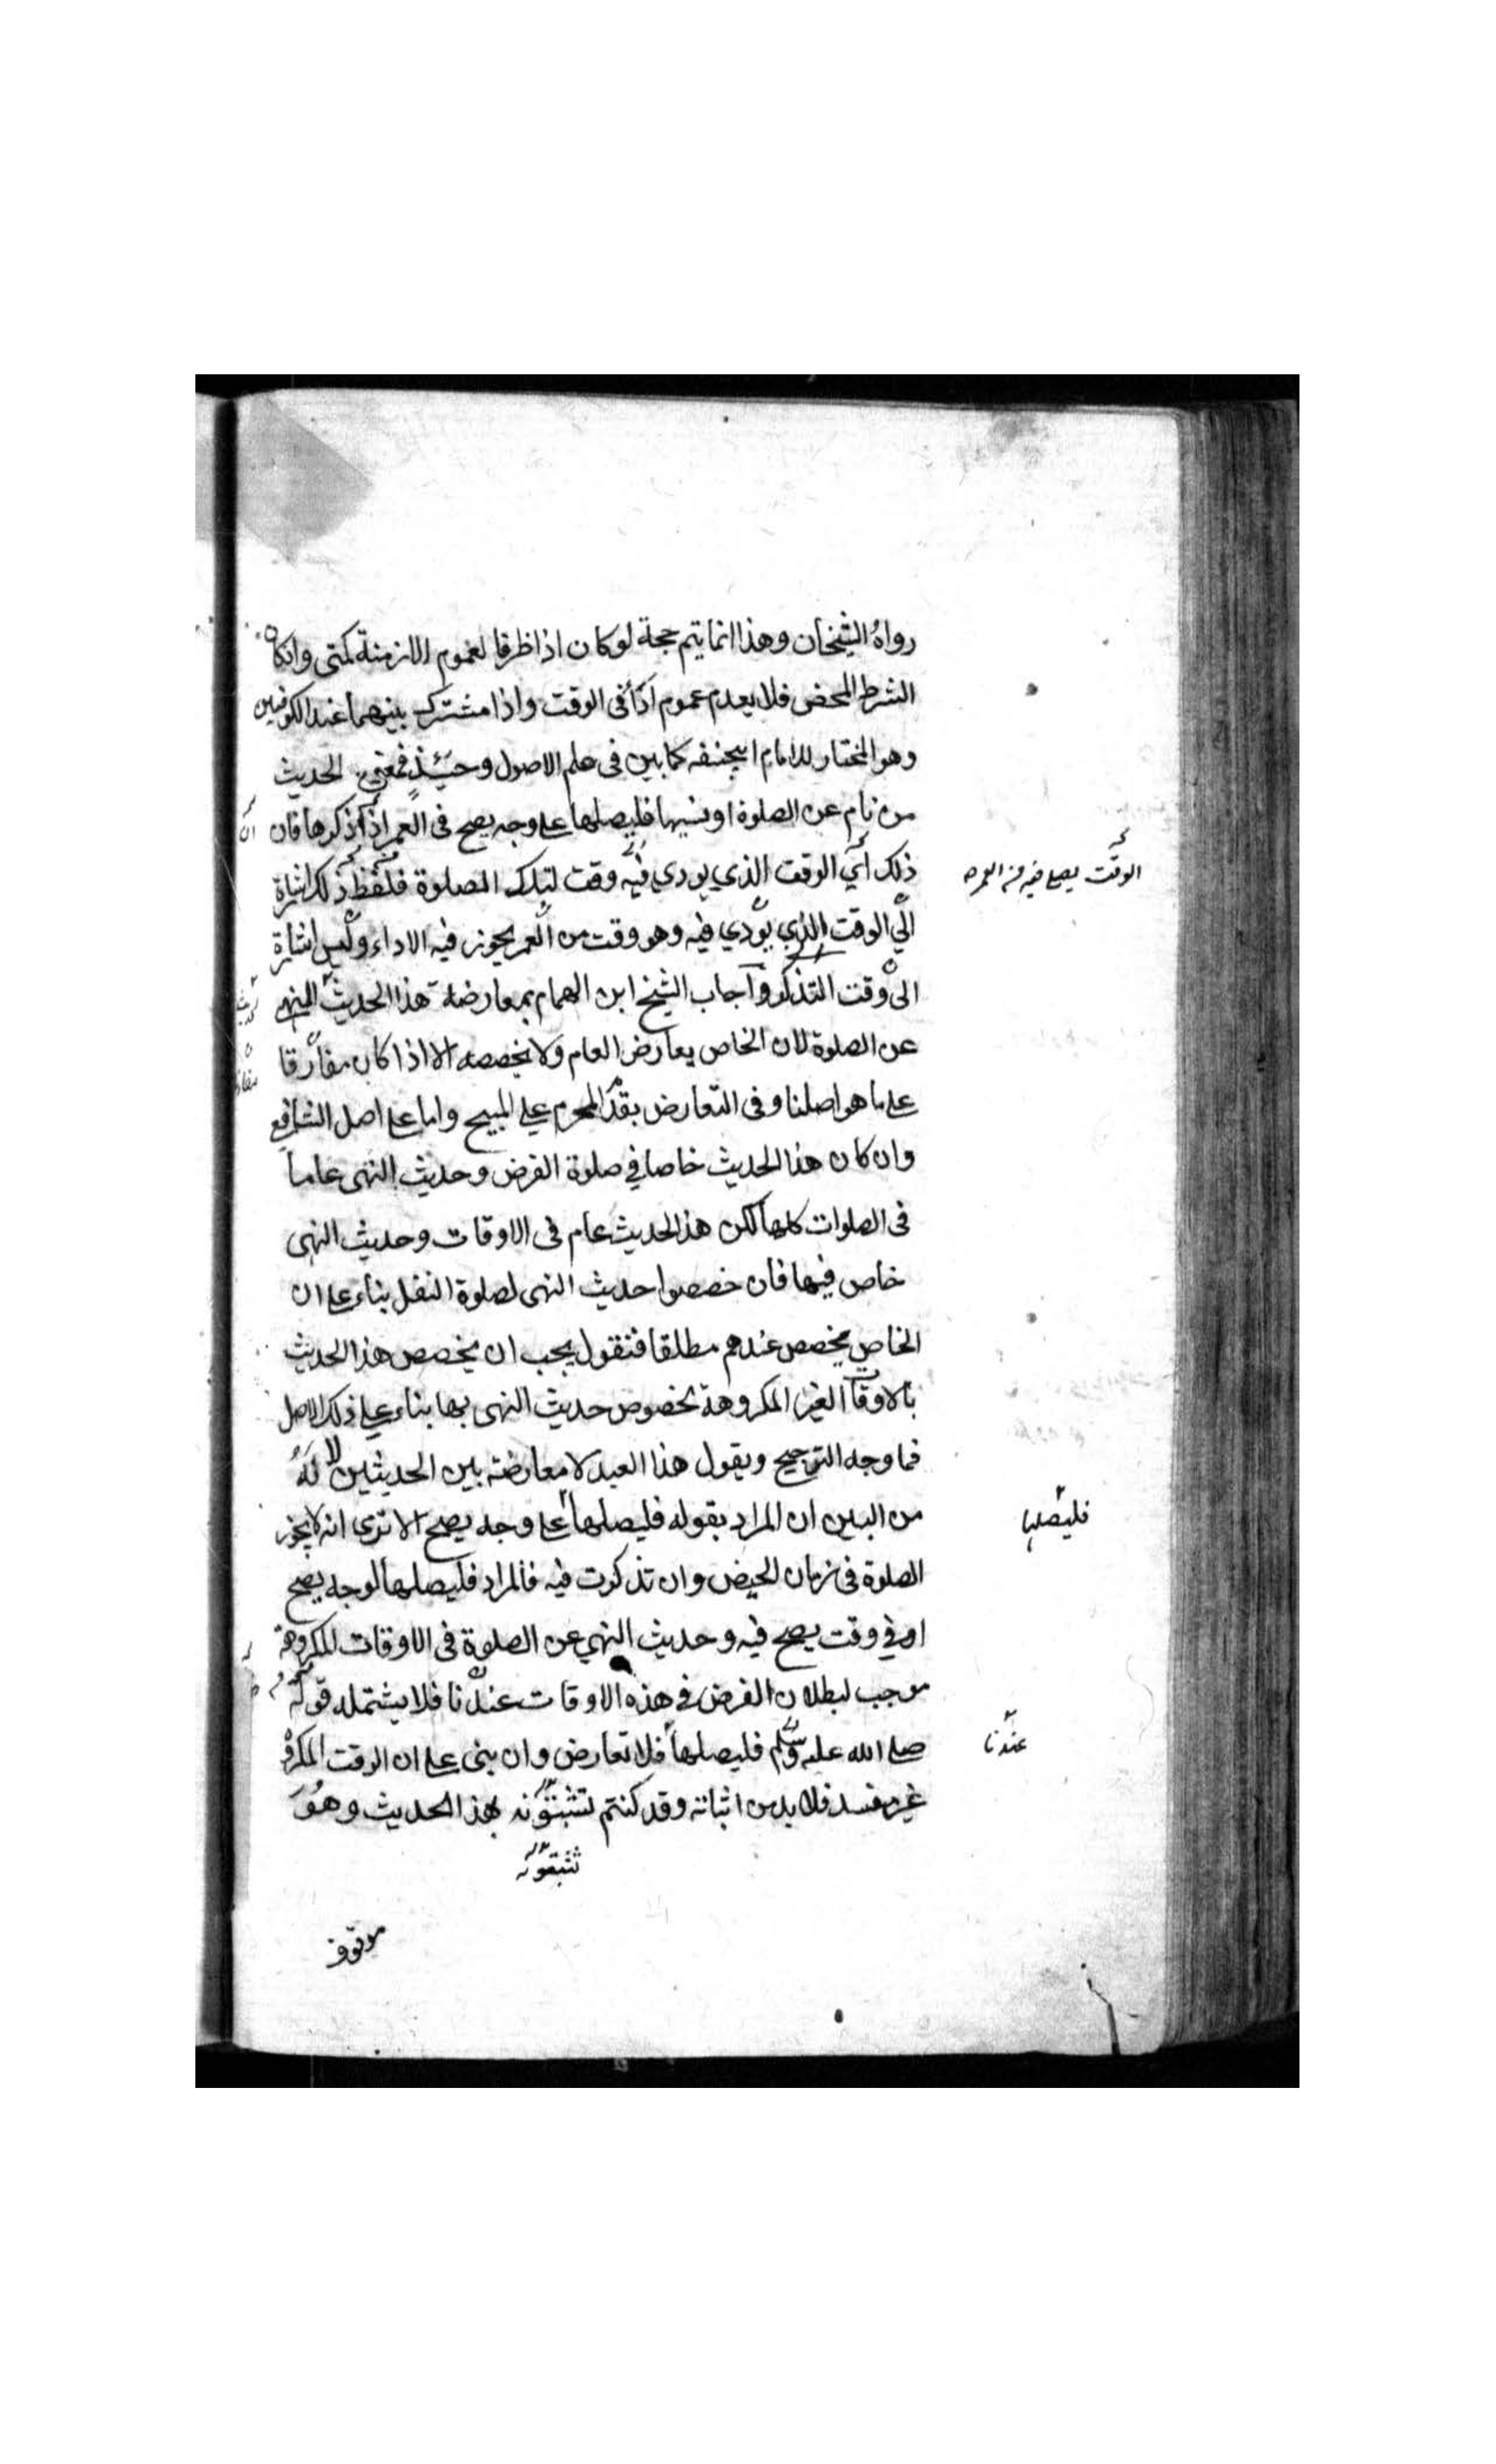 رواه الشيخان وهذا انما يتم حجة لو كان اذا ظرفا لعموم الازمنة كمتى وانكان
الشرط المحض فلا يعدم عموم اذا فى الوقت واذا مشترك بينهما عند الكوفيين
وهو المختار للامام ابيحنفه كما بين فى علم الاصول وحينئذ فمعنى الحديث
من نام عن الصلوة او نسيها فليصلها على وجه يصح فى العمر اذا ذكرها فان
ذلك أي الوقت الذي يودي فيه وقت لتلك الصلوة فلفظ ذلك اشارة
الى الوقت الذي يؤدي فيه وهو وقت من العمر يجوز فيه الاداء وليس اشارة
الى وقت التذكر وأجاب الشيخ ابن الهمام بمعارضة هذا الحديث النهي
عن الصلوة لان الخاص يعارض العام ولا يخصصه الا اذا كان مقارقا
على ما هو اصلنا وفى التعارض يقدم المحرم علي المبيح واما على اصل الشافعي
وان كان هذا الحديث خاصا في صلوة الفرض وحديث النهى عاما
فى الصلوات كلها لكن هذا الحديث عام فى الاوقات وحديث النهى
خاص فيها فان خصصوا حديث النهى لصلوة النفل بناء على ان
الخاص يخصص عندهم مطلقا فنقول يجب ان يخصص هذا الحديث
بالاوقات الغير المكروهة بخصوص حديث النهى بها بناء علي ذلك الاصل
فما وجه الترجيح ويقول هذا العبد لا معارضة بين الحديثين لانه
من البين ان المراد بقوله فليصلها على وجه يصح الا تري انه لا يجوز
الصلوة فى زمان الحيض وان تذكرت فيه فالمراد فليصلها لوجه يصح
او في وقت يصح فيه وحديث النهي عن الصلوة فى الاوقات المكروهة
موجب لبطلان الفرض في هذه الاوقات عندنا فلا يشتمله قوله
صلى الله عليه وسلم فليصلها فلا تعارض وان بنى على ان الوقت المكروه
غير مفسد فلا بد من اثباته وقد كنتم تثبتونه بهذا الحديث وهو
تثبتونه
موقوف
الوقت يصلى فيه من العمر
فليصلها
عندنا